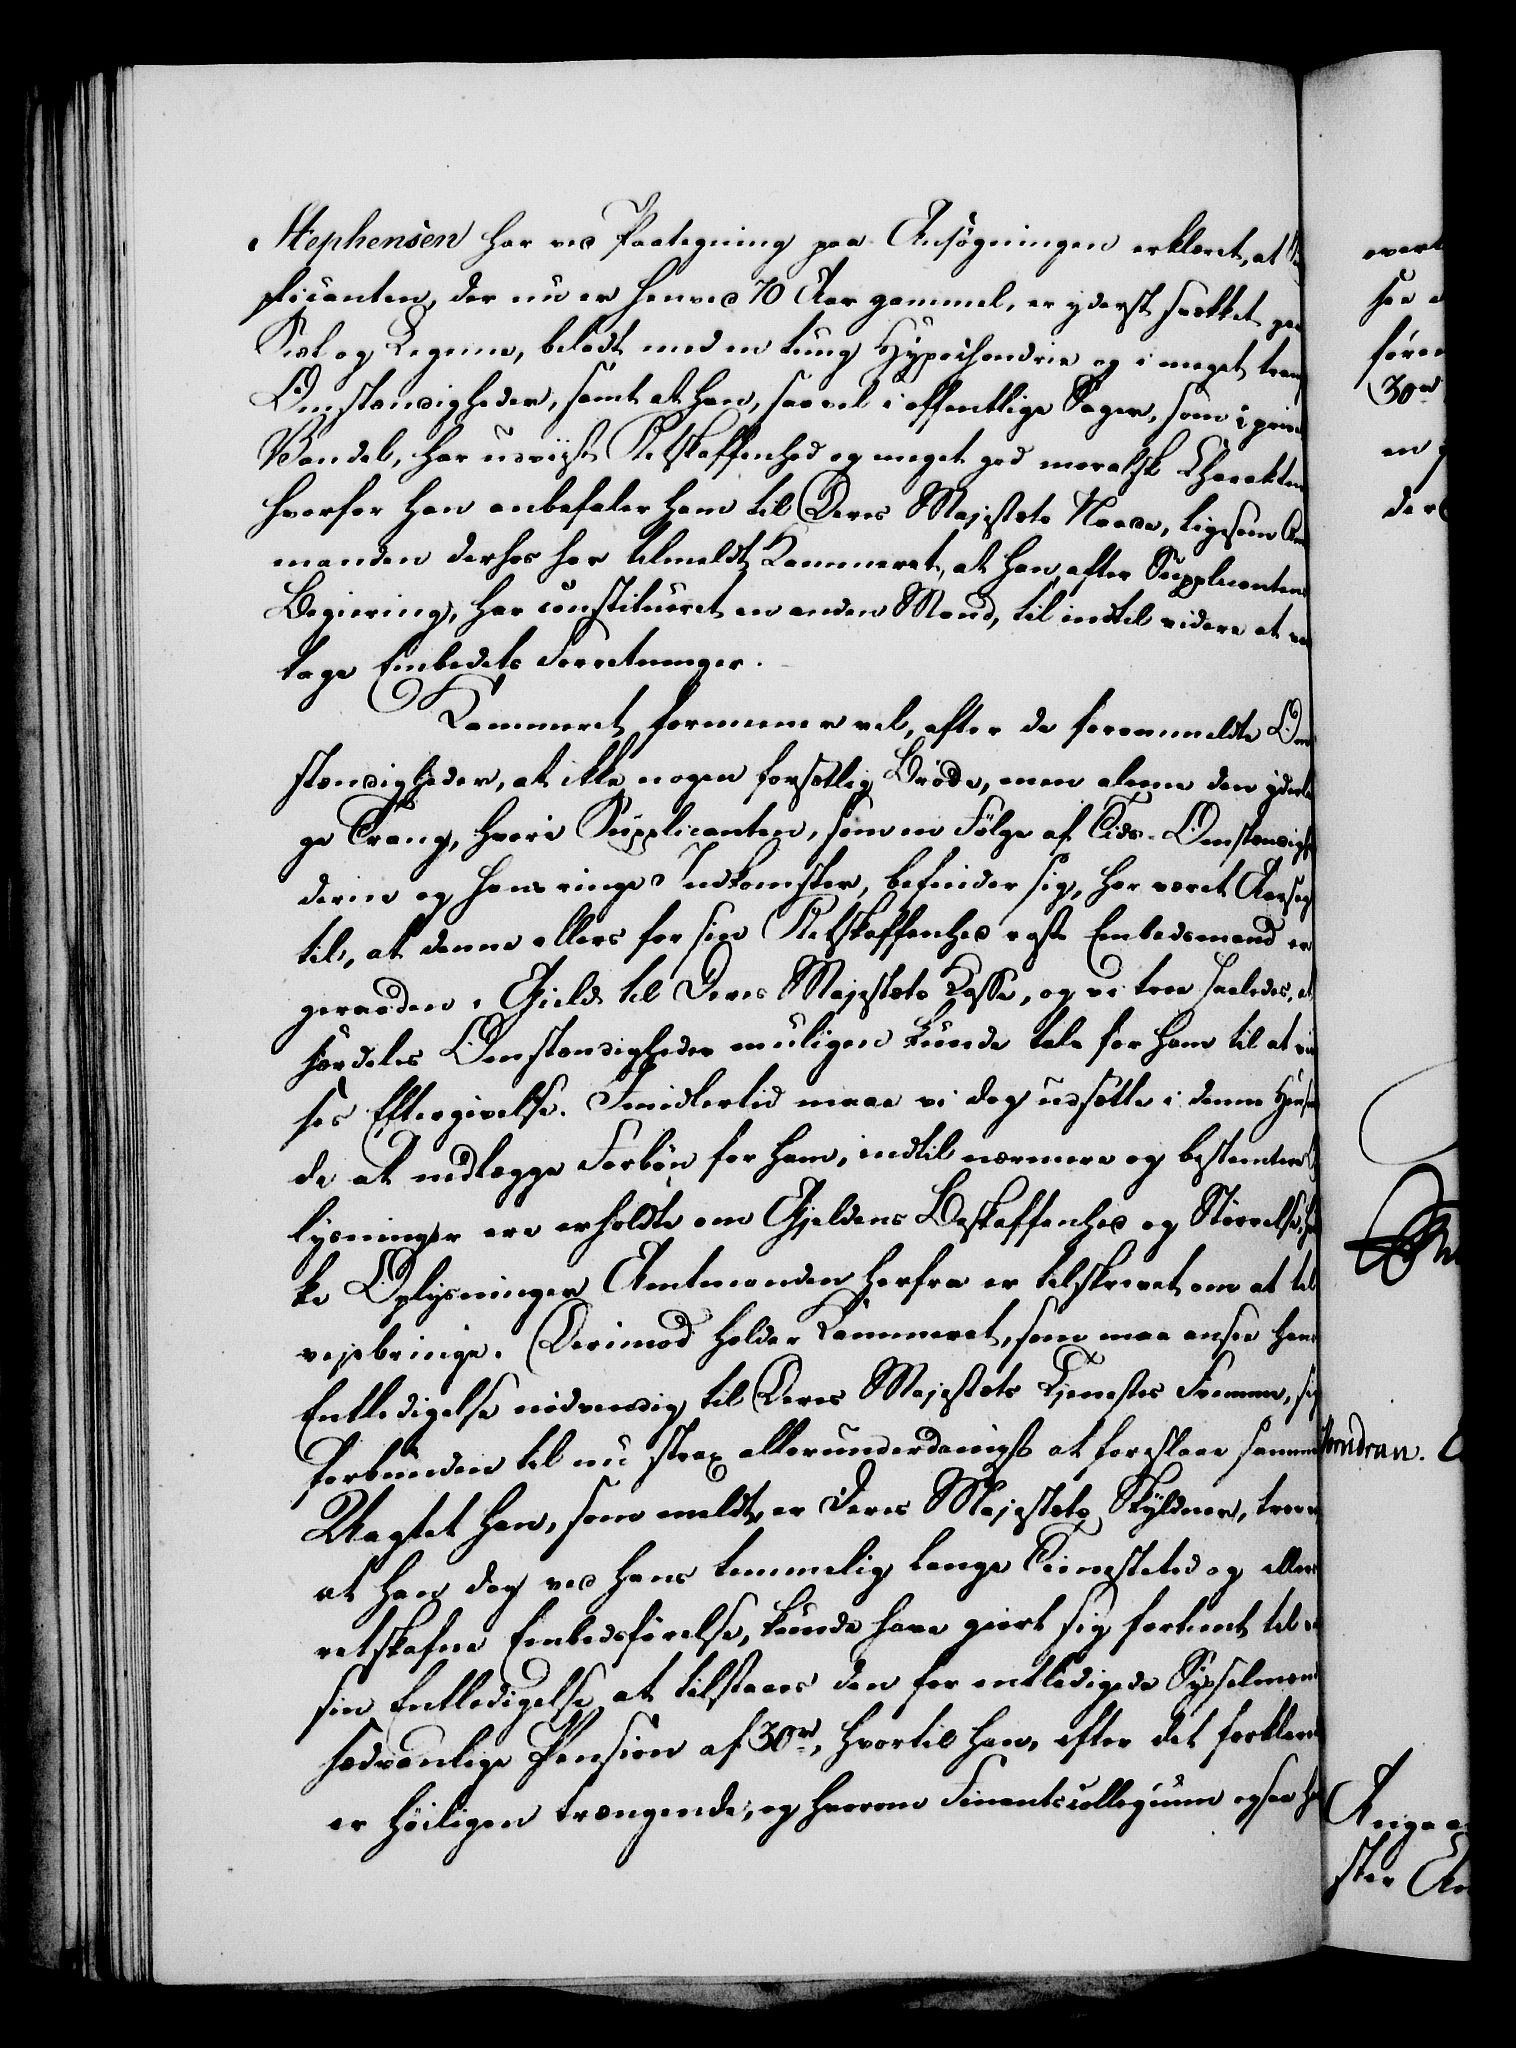 Stephensen har ved Paategning paa Ansøgningen erklæret, at Su
plicanten, der nu er henved 70 Aar gammel, er yderst svækket paa
Siæl og Legeme, beladt med en tung Hypochondrie og i meget trang
Omstændigheder, samt at han, saavel i offentlige Sager, som i priva
Vandel, har udviist Retskaffenhed og meget god moralsk Charakteer
hvorfor han anbefaler ham til Deres Majestæts Naade, ligesom Amt
manden derhos har tilmeldt Kammeret, at han, efter Supplicantens
Begiering, har constitueret en anden Mand, til indtil videre at va
tage Embedets Forretninger.
Kammeret formener vel, efter de foranmeldte Om
stændigheder, at ikke nogen forsætlig Brøde, men alene den yderli
ge Trang, hvori Supplicanten, som en Følge af Tids-Omstændighe
derne og hans ringe Indkomster, befinder sig, har været Aarsag
til, at denne ellers for sin Retskaffenhed roste Embedsmand er
geraaden i Gield til Deres Majestæts Kasse, og vi troe saaledes, at
særdeles Omstændigheder muligen kunde tale for ham til at vin
des Eftergivelse. Imidlertid maae vi dog udsætte i denne Hense
de at nedlægge Forbøn for ham, indtil nærmere og bestemtere O
lysninger ere erholdte om Gjeldens Beskaffenhed og Størrelse, hvil
ke Oplysninger Amtmanden herfra er tilskrevet om at til
vejebringe. Derimod holder Kammeret, som maa ansee hans
Entledigelse nødvendig til Deres Majestæts Tjenestes Fremme, sig
forbunden til nu strax allerunderdanigst at foreslaae samme
Uagtet han, som meldt, er Deres Majestæts Skyldner, troer
at han dog ved hans temmelig lange Tienestetid og ellers
retskafne Embedsførelse, kunde have giort sig fortient til v
sin Entledigelse at tilstaaes den for entledigede Sysselmænd
sædvanlige Pension af 30 rd, hvortil han, efter det forklarede
er høiligen trængende, og hvorom Finantscollegium ogsaa ha